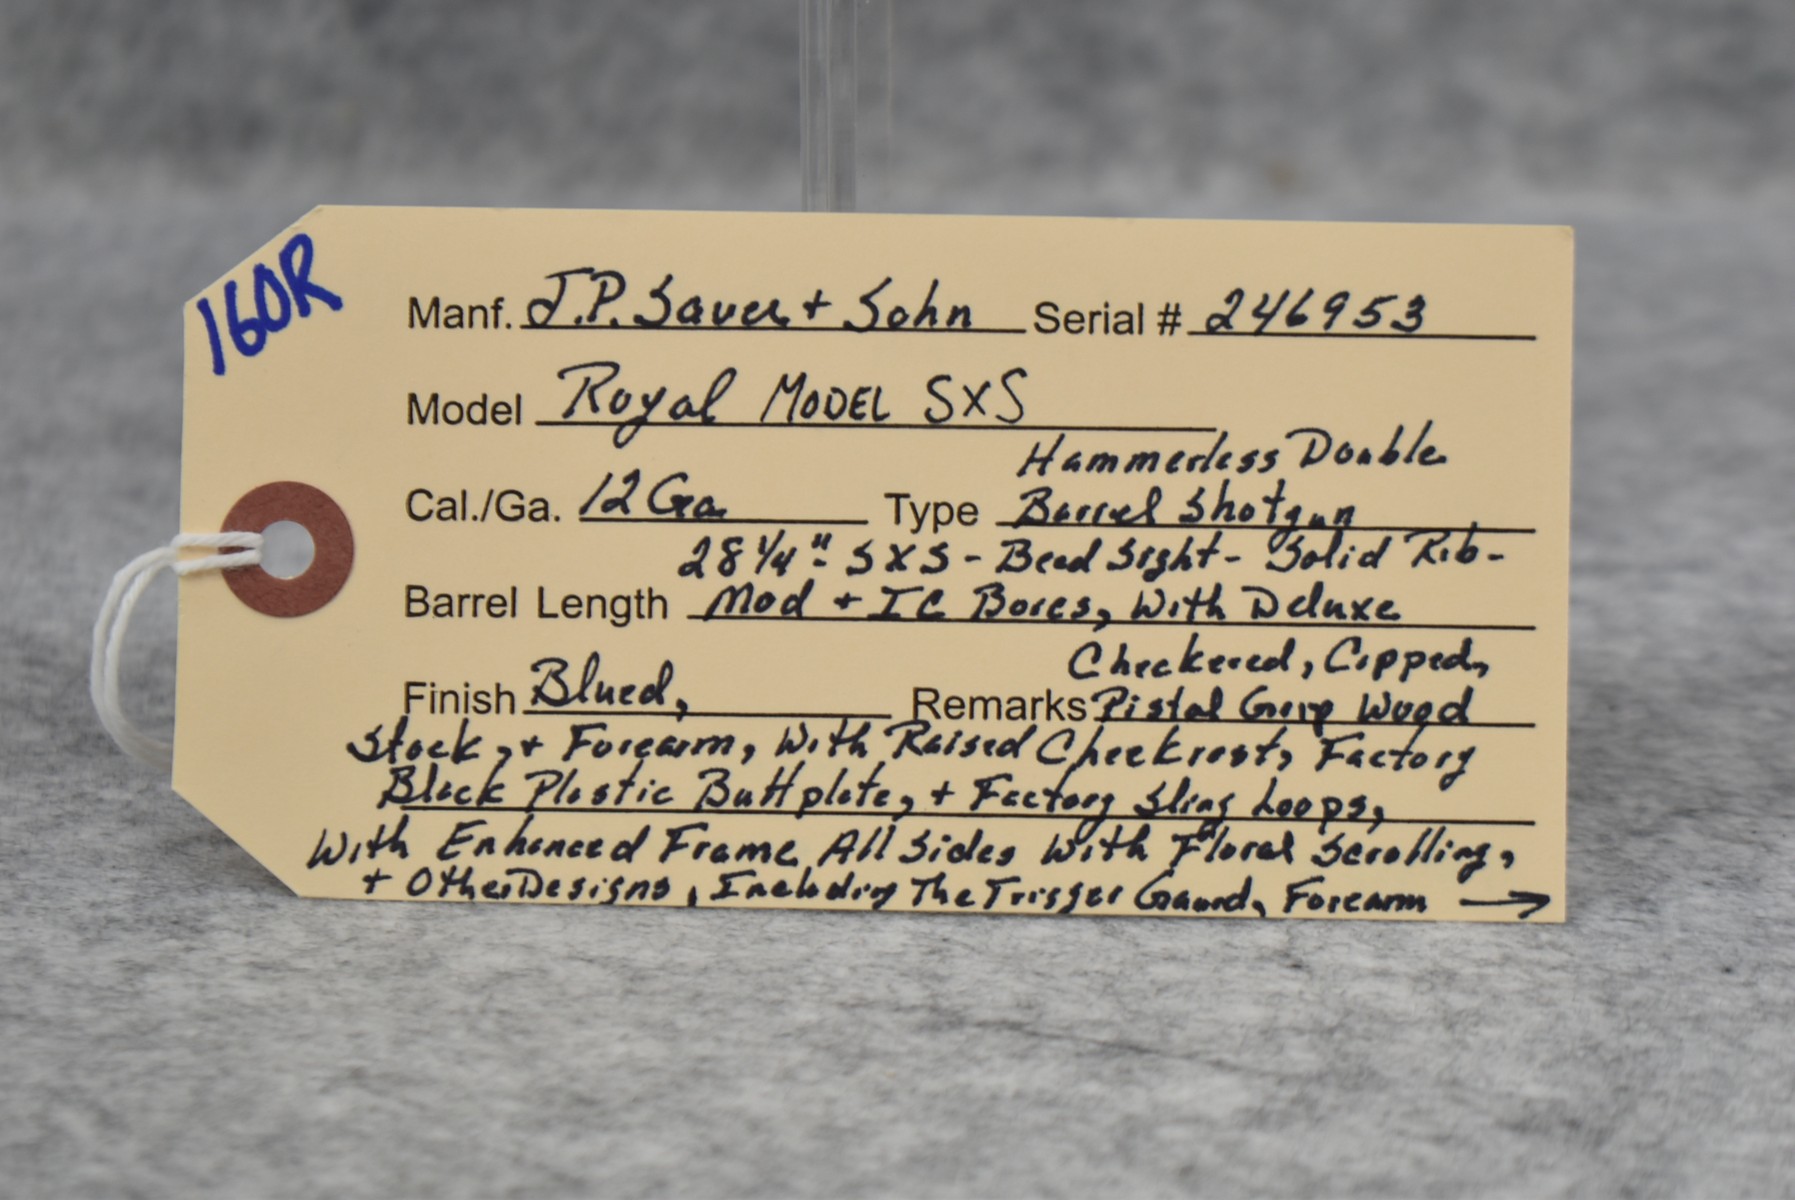 160R
Manf. J.P. Sauer + Sohn Serial # 246953
Model Royal MODEL SXS
Hammerless Double
Cal./Ga. 12 Ga. Type Barrel Shotgun
28 1/4" SXS - Bead Sight - Solid Rib -
Barrel Length Mod + IC Bores, With Deluxe
Checkered, Capped,
Finish Blued, Remarks Pistol Grip Wood
Stock, + Forearm, With Raised Cheekrest, Factory
Black Plastic Buttplate, + Factory Sling Loops,
With Enhanced Frame All Sides With Floral Scrolling,
+ Other Designs, Including The Trigger Gaurd, Forearm →